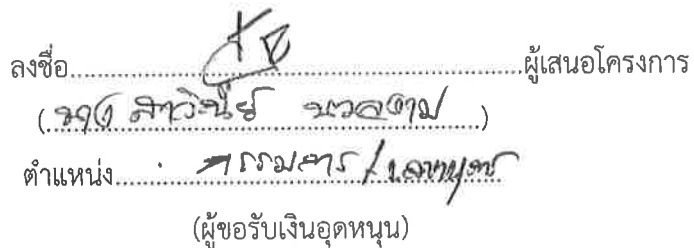 ลงชื่อ..............................ผู้เสนอโครงการ
(นาง สาวิณีย์ นวลงาม)
ตำแหน่ง.......กรรมการ/เลขานุการ
(ผู้ขอรับเงินอุดหนุน)